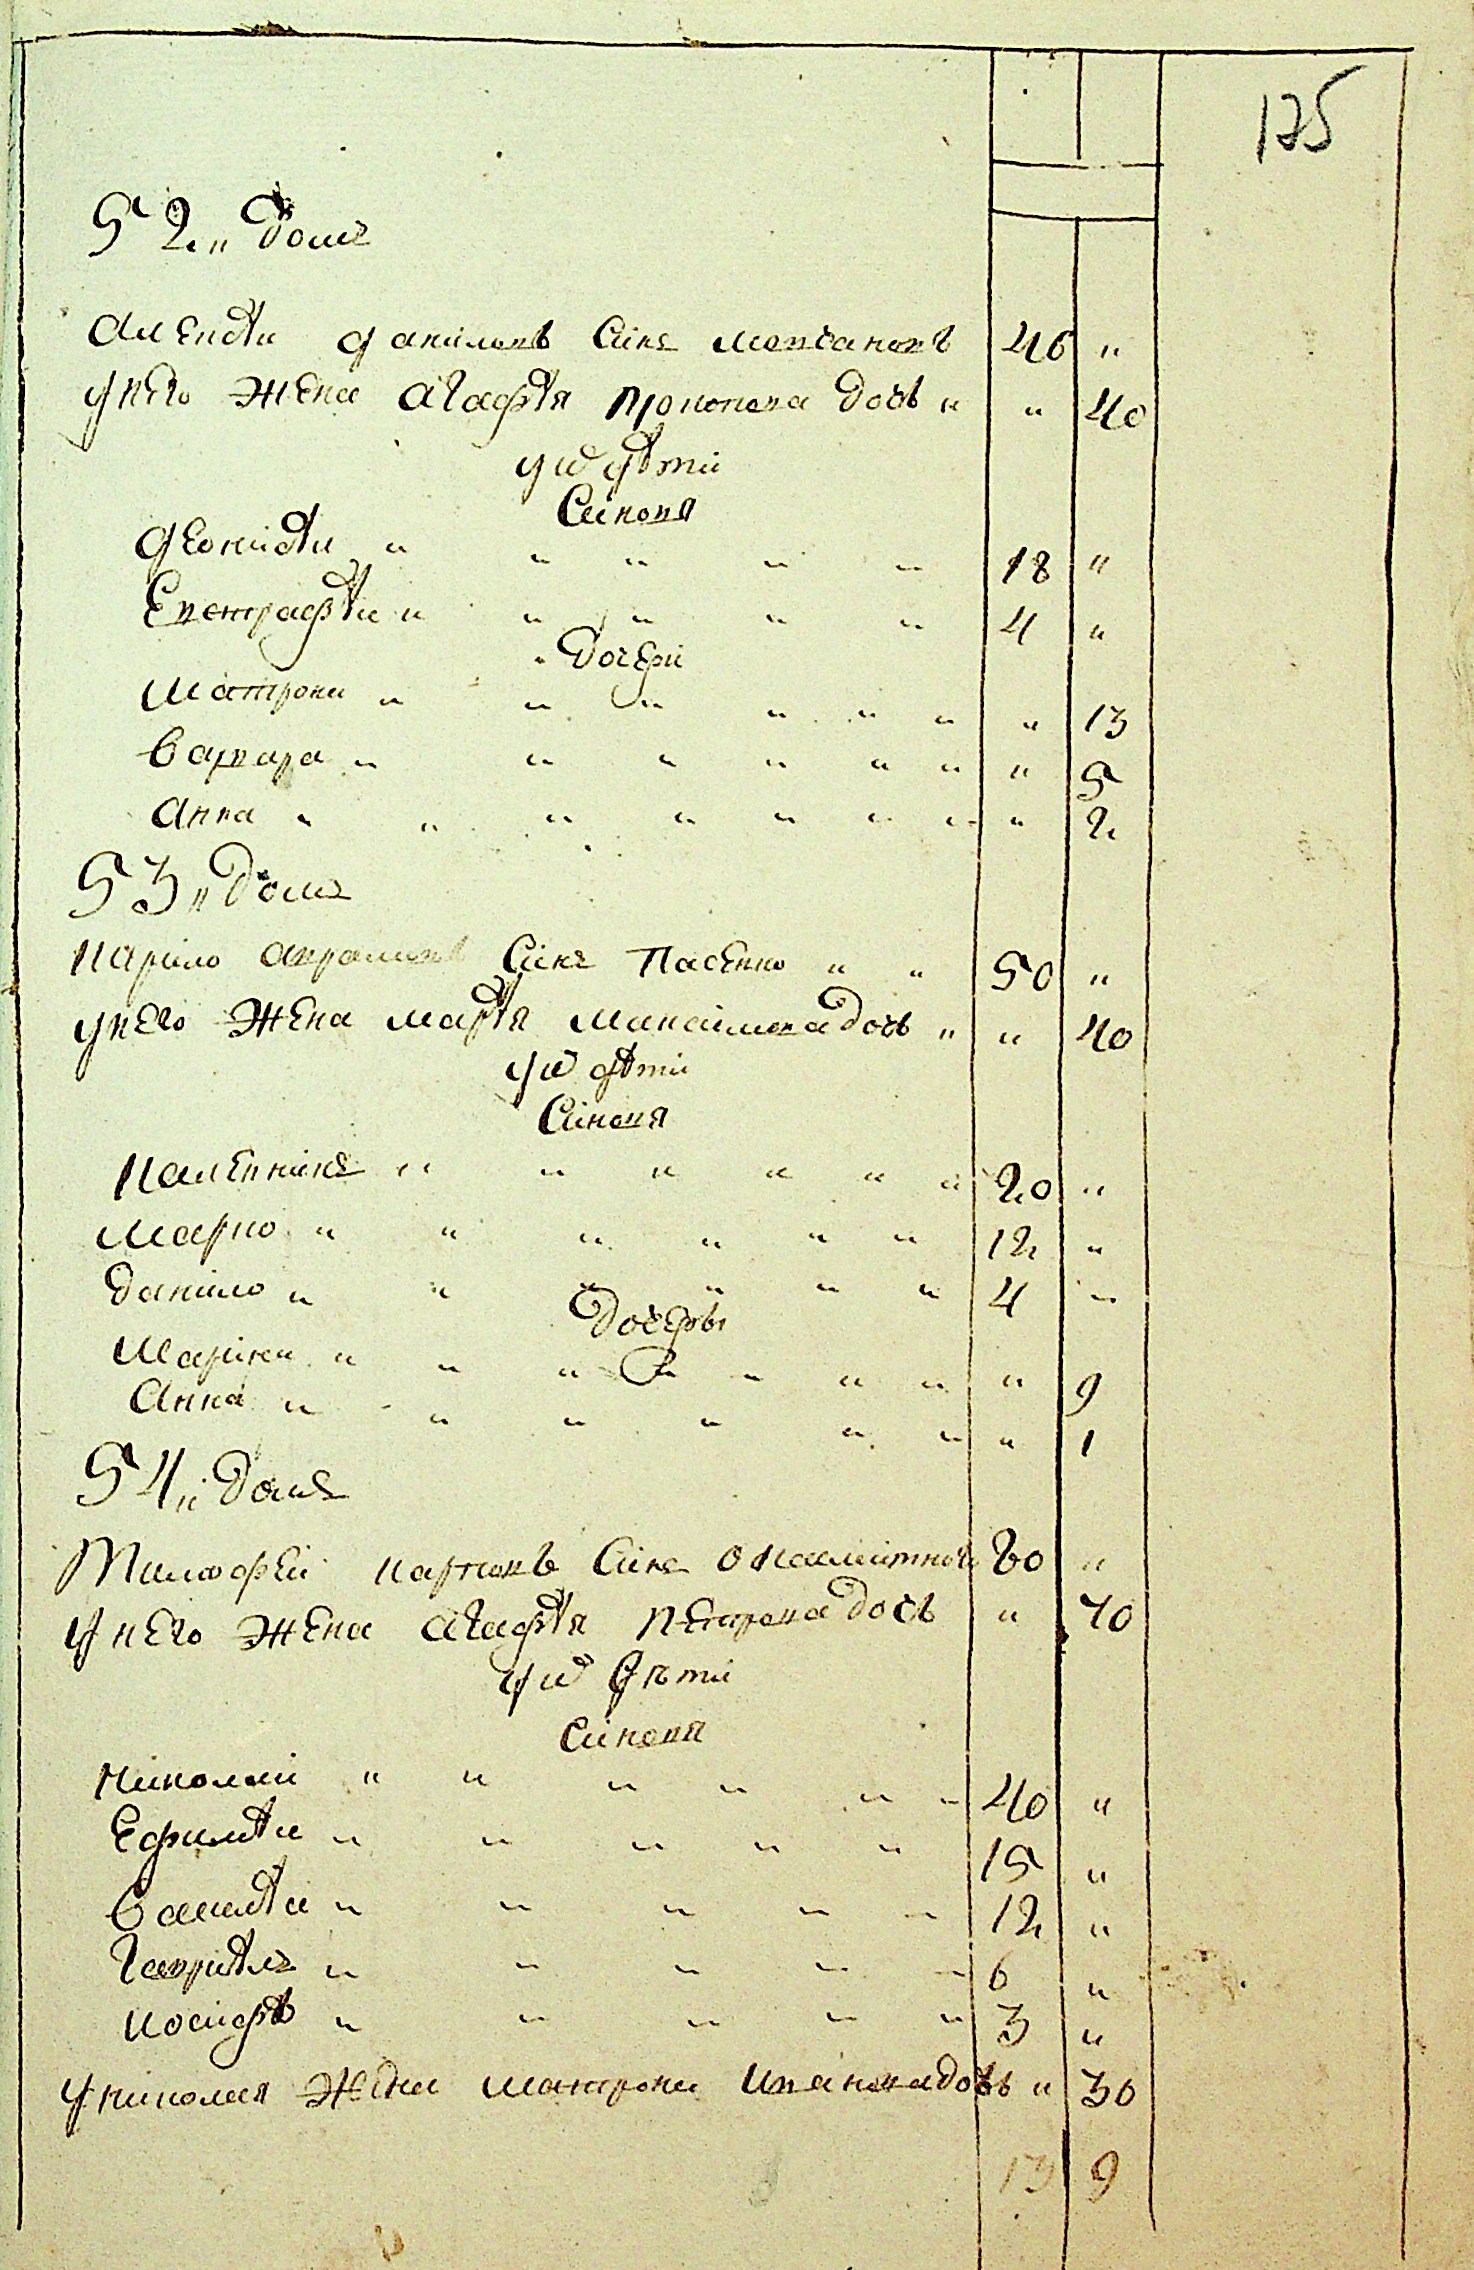 175
52„ домъ
Алеѯѣи Даниловъ Синъ Мовчановъ 46 „
у него жена Агафѣя Прокопова дочъ „ „ 40
у ѿ дѣти
Синовя
Деонисѣи „ „ „ „ „ 18 „
Евстрафѣи „ „ „ „ „ 4 „
Дочери
Матрона „ „ „ „ „ „ „ 13
Варвара „ „ „ „ „ „ „ 5
Анна „ „ „ „ „ „ „ „ 2
53„ домъ
Кирило Аврамовъ Синъ Пасенко „ „ 50 „
у него жена Марѣя Макаимова дочъ „ „ 40
у ѿ дѣти
Синовя
Калѣникъ „ „ „ „ „ „ 20 „
Марко „ „ „ „ „ „ 12 „
Данило „ „ „ „ „ „ 4 „
Дочеры
Марина „ „ „ „ „ „ „ „ 9
Анна „ „ „ „ „ „ „ 1
54„ домъ
Тимофей Карповъ Синъ 80 „
у него жена Агафѣя Петрова дочъ „ 70
у ѿ дѣти
Синовя
Николай „ „ „ „ „ „ 40 „
Ефимѣи „ „ „ „ „ 15 „
Василѣи „ „ „ „ „ 12 „
Гаврѣилъ „ „ „ „ „ 6 „
Иосифъ „ „ „ „ „ 3 „
у Николая Жена Матрона Иванова дочъ „ 30
13 9